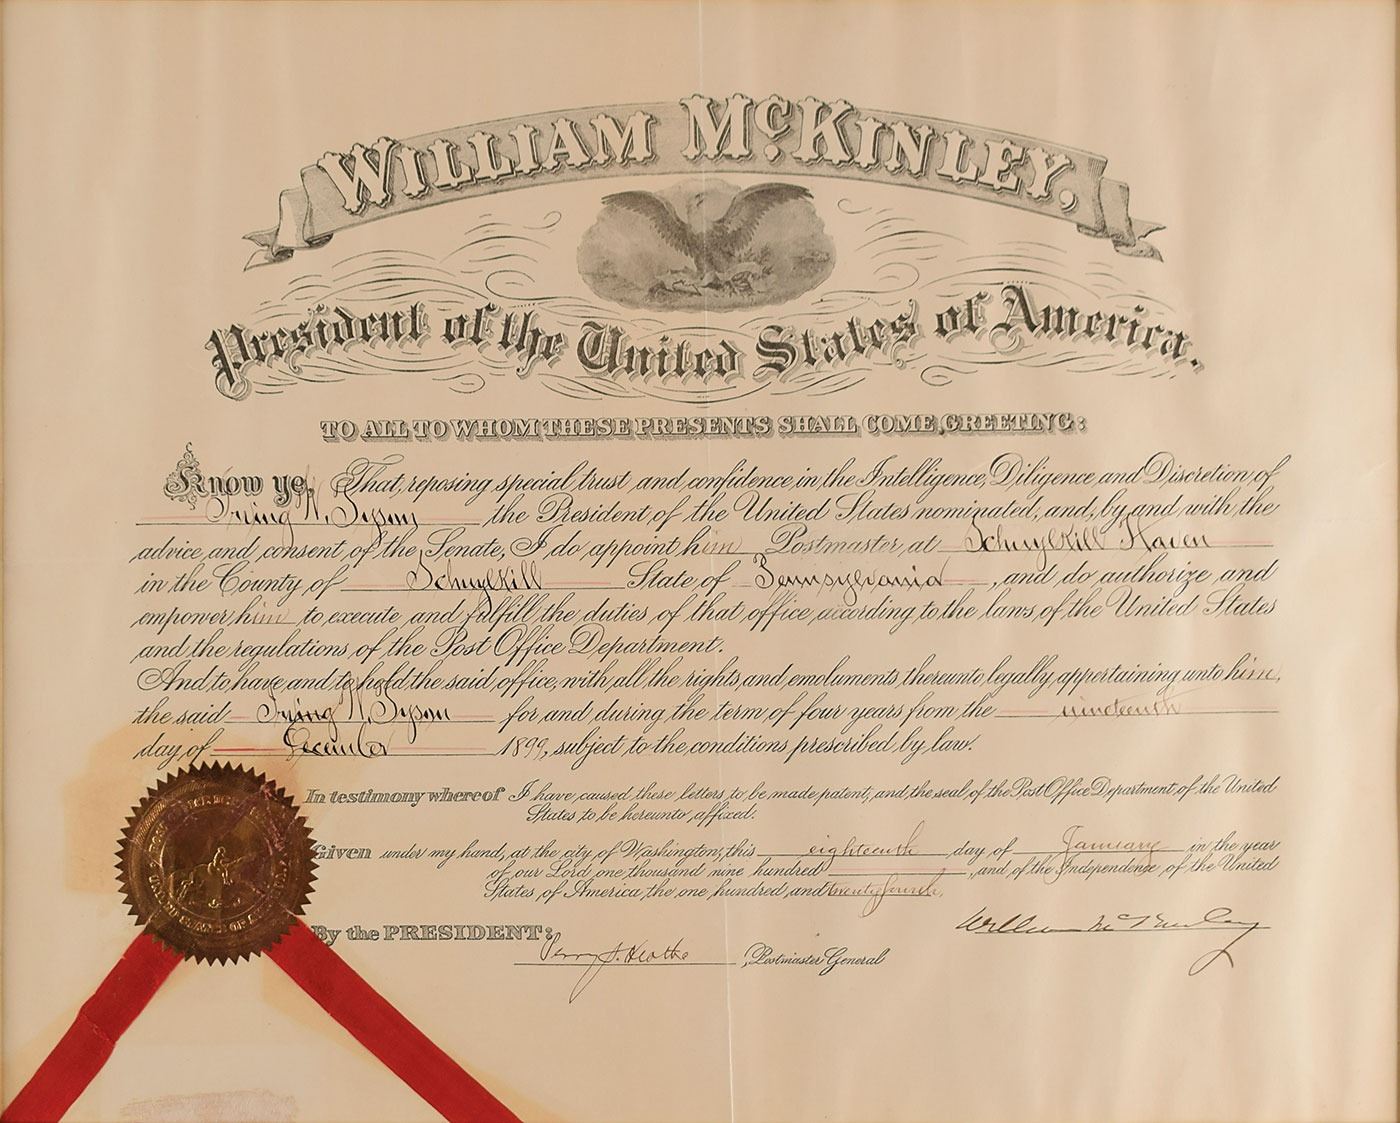 WILLIAM McKINLEY,
President of the United States of America.
TO ALL TO WHOM THESE PRESENTS SHALL COME, GREETING:
Know ye, That, reposing special trust and confidence in the Intelligence, Diligence and Discretion of
Irving W. Tyson the President of the United States nominated, and, by and with the
advice and consent of the Senate, I do appoint him Postmaster, at Schuylkill Haven
in the County of Schuylkill State of Pennsylvania, and do authorize and
empower him to execute and fulfill the duties of that office according to the laws of the United States
and the regulations of the Post Office Department.
And to have and to hold the said office, with all the rights and emoluments thereunto legally appertaining unto him,
the said Irving W. Tyson for and during the term of four years from the nineteenth
day of December 1899, subject to the conditions prescribed by law.
In testimony whereof I have caused these letters to be made patent, and the seal of the Post Office Department of the United
States to be hereunto affixed.
Given under my hand, at the city of Washington, this eighteenth day of January in the year
of our Lord one thousand nine hundred, and of the Independence of the United
States of America the one hundred and twenty fourth.
William McKinley
By the PRESIDENT:
Perry S. Heath, Postmaster General